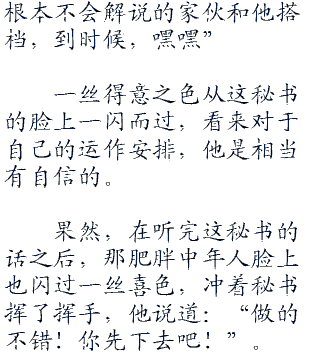 根本不会解说的家伙和他搭
档，到时候，嘿嘿”
一丝得意之色从这秘书
的脸上一闪而过，看来对于
自己的运作安排，他是相当
有自信的。
果然，在听完这秘书的
话之后，那肥胖中年人脸上
也闪过一丝喜色，冲着秘书
挥了挥手，他说道：“做的
不错！你先下去吧！”。